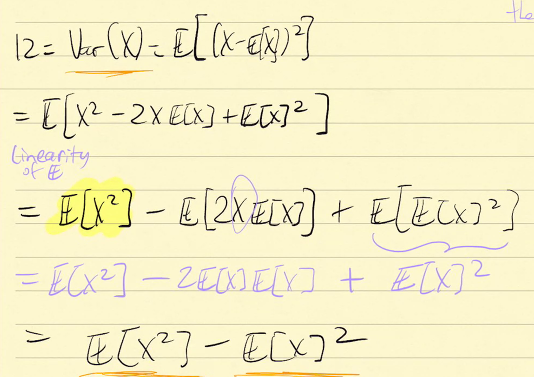 the
12 = Var(X) = E[(X-E[X])²]
= E[X² - 2X E[X] + E[X]²]
Linearity
of E
= E[X²] - E[2XE[X]] + E[E[X]²]
= E[X²] - 2E[X]E[X] + E[X]²
= E[X²] - E[X]²